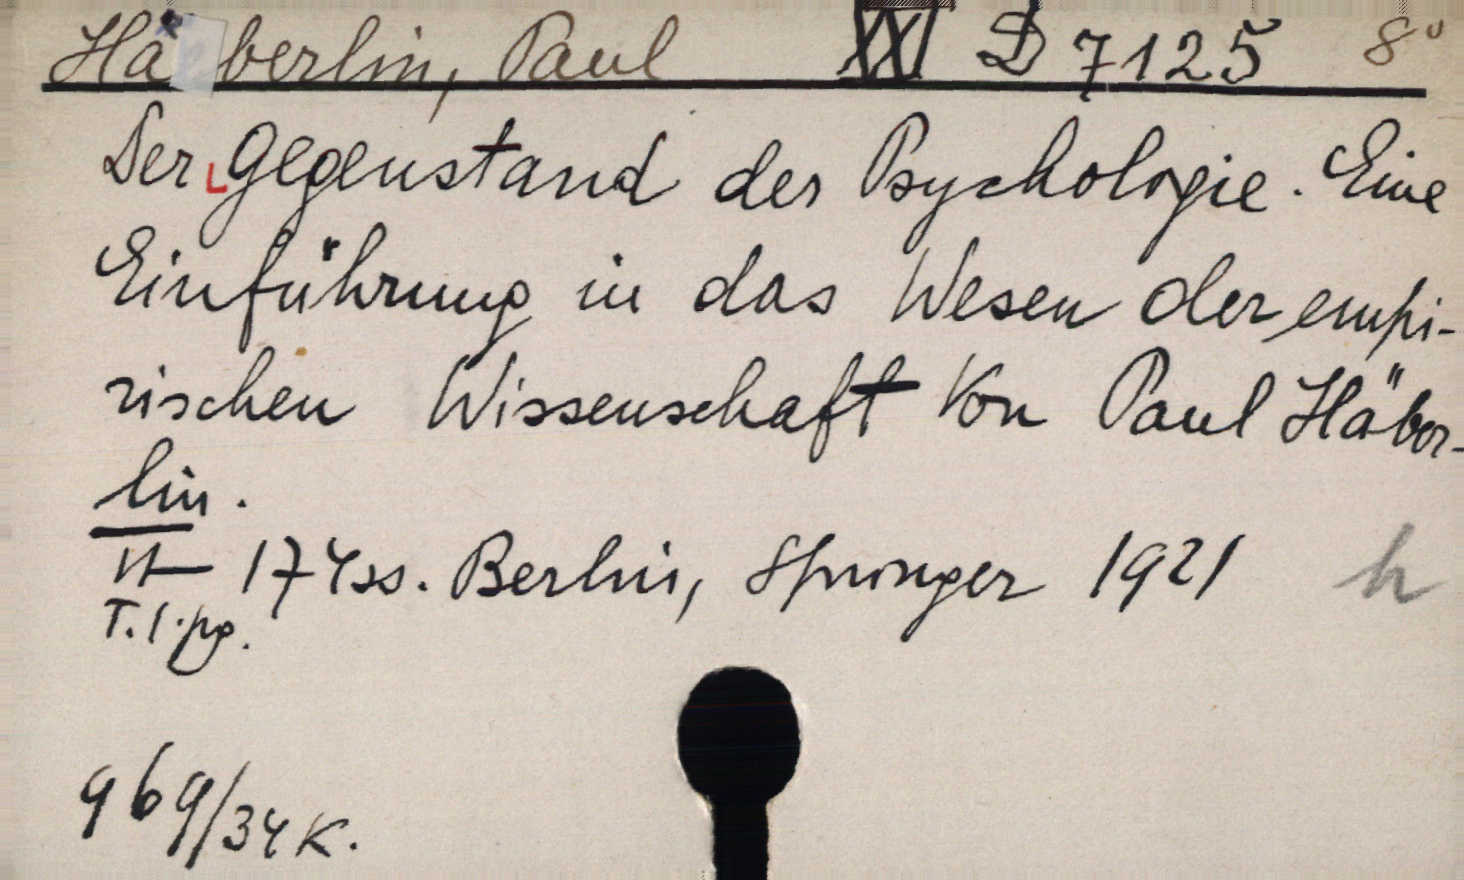 Häberlin, Paul XXI D 7125 8°
Der Gegenstand der Psychologie. Eine
Einführung in das Wesen der empi-
rischen Wissenschaft Von Paul Häber-
lin.
174 ss. Berlin, Springer 1921 h
T. l. pg.
969/34 K.